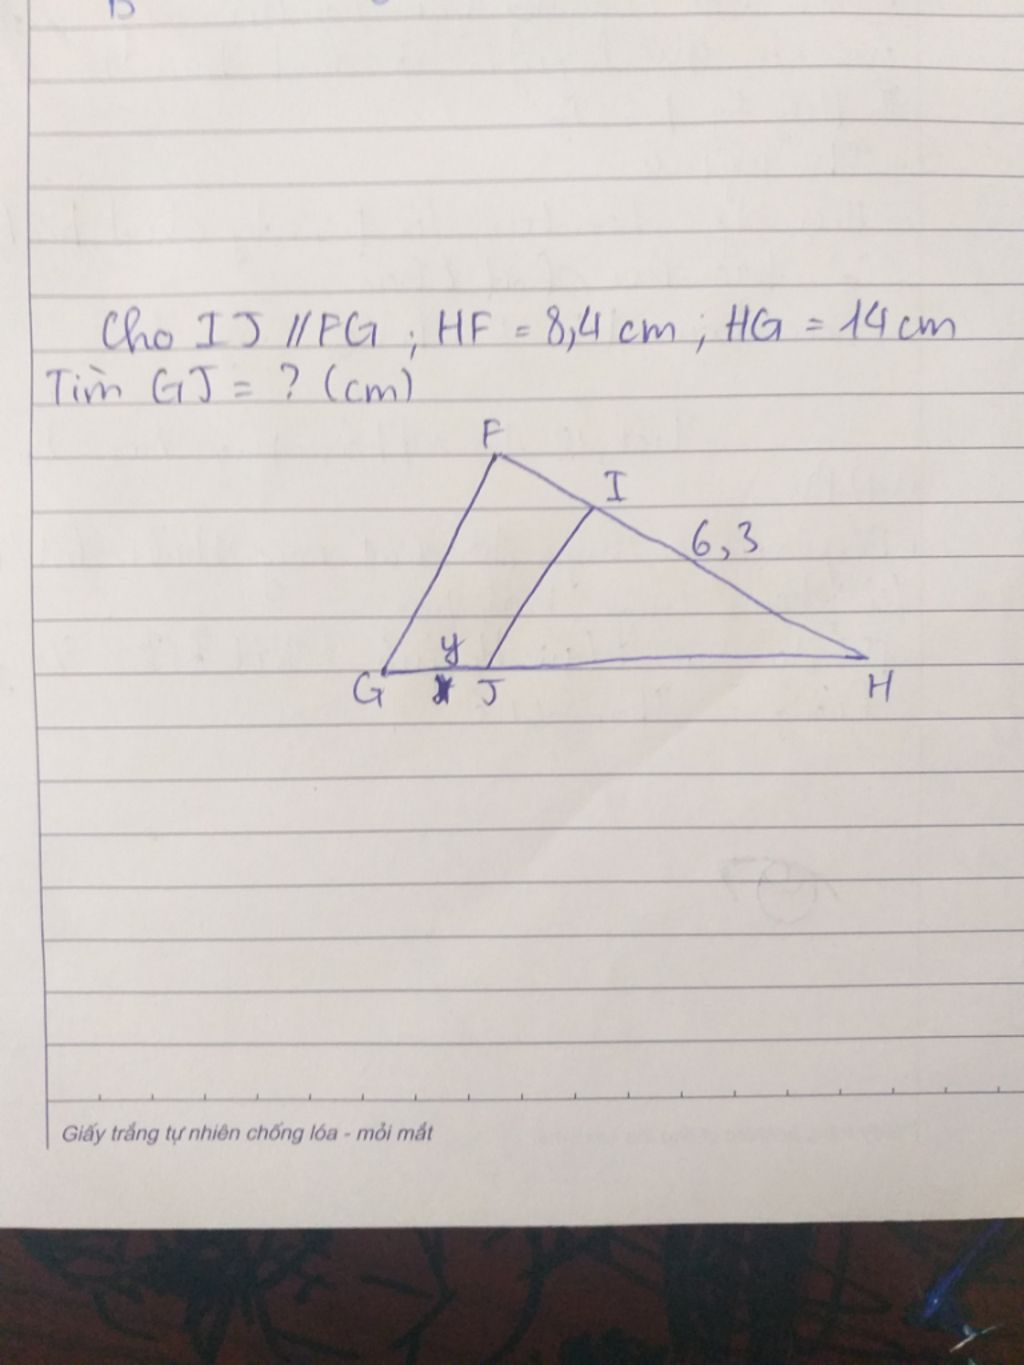 Cho IJ // FG ; HF = 8,4 cm ; HG = 14 cm
Tìm GJ = ? (cm)
F
I
6,3
y
G
J
H
Giấy trắng tự nhiên chống lóa - mỏi mắt